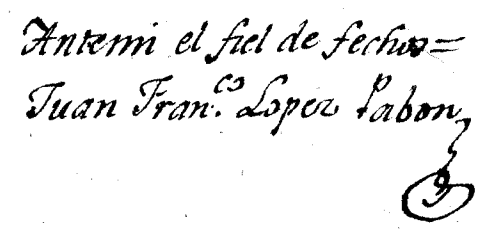 Antemi el fiel de fechos=
Juan Fran.co Lopez Pabon